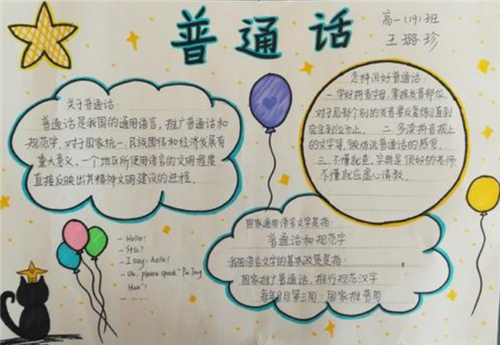 普通话
高一(19)班
王璐珍
关于普通话:
普通话是我国的通用语言,推广普通话和
规范字,对于国家统一、民族团结和经济发展有
重大意义,一个地区所使用语言的文明程度
直接反映出其精神文明建设的进程。
怎样说好普通话:
一.学好拼音字母,掌握发音部位,
对于局部个别的发音要反复练习直到
完全到位为止。二.多读拼音报上
的文字等,锻炼说普通话的感觉。
三.不懂就查,字典是很好的老师
不懂就应虚心请教。
- Hello!
- I say: hello!
- Uh, please speak "Pu Tong
Hua"!
- ……
国家通用语言文字是指:
普通话和规范字
我国语言文字的基本政策是指:
国家推广普通话,推行规范汉字
每年9月第三周:国家推普周